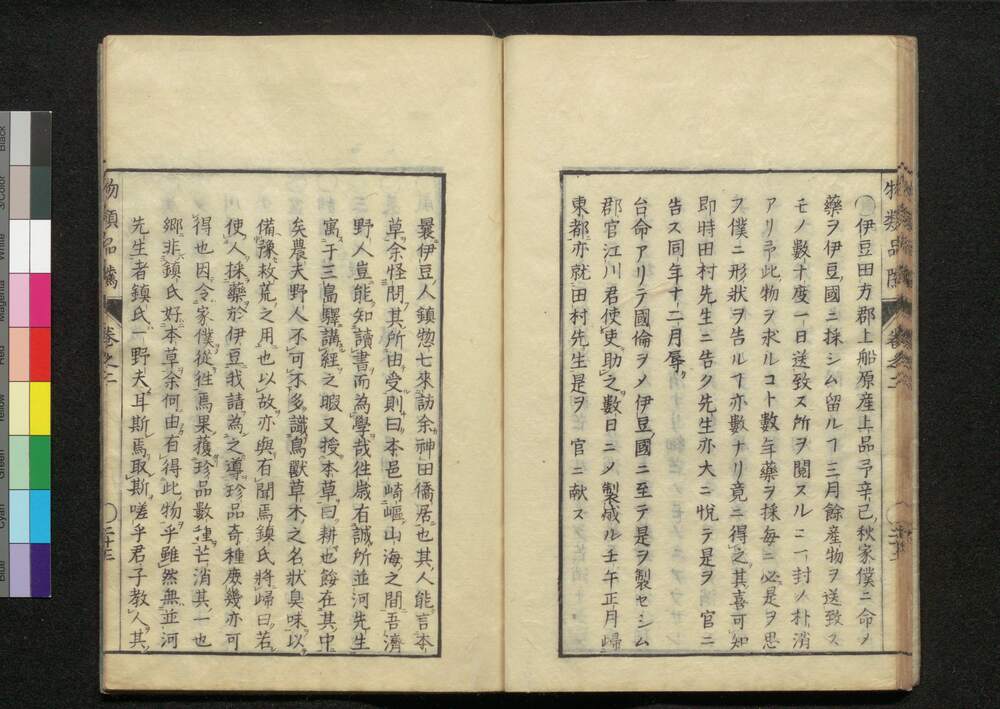 伊豆田方郡上船原産上品予辛巳秋家僕ニ命メ
藥ヲ伊豆國ニ採シム留ルヿ三月餘産物ヲ送致ス
モノ數十度一日送致ス所ヲ閲スルニ一封ノ朴消
アリ予此物ヲ求ルコト數年藥ヲ採毎ニ必是ヲ思
ヲ僕ニ形狀ヲ告ルヿ亦數ナリ竟ニ得之其喜可知
即時田村先生ニ告ク先生亦大ニ悦テ是ヲ 官ニ
告ス同年十二月辱
台命アリテ國倫ヲメ伊豆國ニ至テ是ヲ製セシム
郡官江川君使吏助之數日ニメ製成ル壬午正月歸
東都亦就田村先生是ヲ 官ニ献ス
曩伊豆人鎮惣七來訪余神田僑居也其人能言本
草余怪問其所由受則曰本邑崎嶇山海之間吾儕
野人豈能知讀書而為學哉徃歳有誠所並河先生
寓于三島驛講經之暇又授本草曰耕也餒在其中
矣農夫野人不可不多識鳥獸草木之名狀臭味以
備豫救荒之用也以故亦與有聞焉鎮氏將歸曰若
使人採藥於伊豆我請為之導珍品奇種庶幾亦可
得也因令家僕從徃焉果獲珍品數種芒消其一也
郷非鎮氏好本草余何由有得此物乎雖然無並河
先生者鎮氏一野夫耳斯焉取斯嗟乎君子教人其
物類品隲 卷之二
二十三